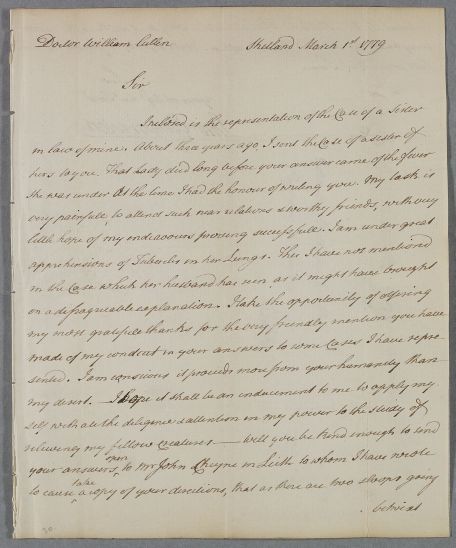 Doctor William Cullen Shetland March 1st 1779
Sir
Inclosed is the representation of the Case of a Sister
in law of mine. About three years ago I sent the Case of a sister of
hers to you. That Lady died long before your answer came of the fever
she was under at the time I had the honour of writing you. My task is
very painfull to attend such near relations & worthy friends, with very
little hope of my endeavours proving successfull. I am under great
apprehensions of Tubercles in her Lungs. This I have not mentioned
in the Case which her husband has seen as it might have brought
on a disagreeable explanation. I take the opportunity of offering
my most gratefull thanks for the very friendly mention you have
made of my conduct in your answers to some Cases I have repre-
sented. I am conscious it proceeds more from your humanity than
my desert. I hope it shall be an inducement to me to apply my
self with all the diligence & attention in my power to the study of
relieving my fellow creatures. — Will you be kind enough to send
your answers open to Mr John Cheyne in Leith to whom I have wrote
to cause take a copy of your directions, that as there are two sloops going
betwixt